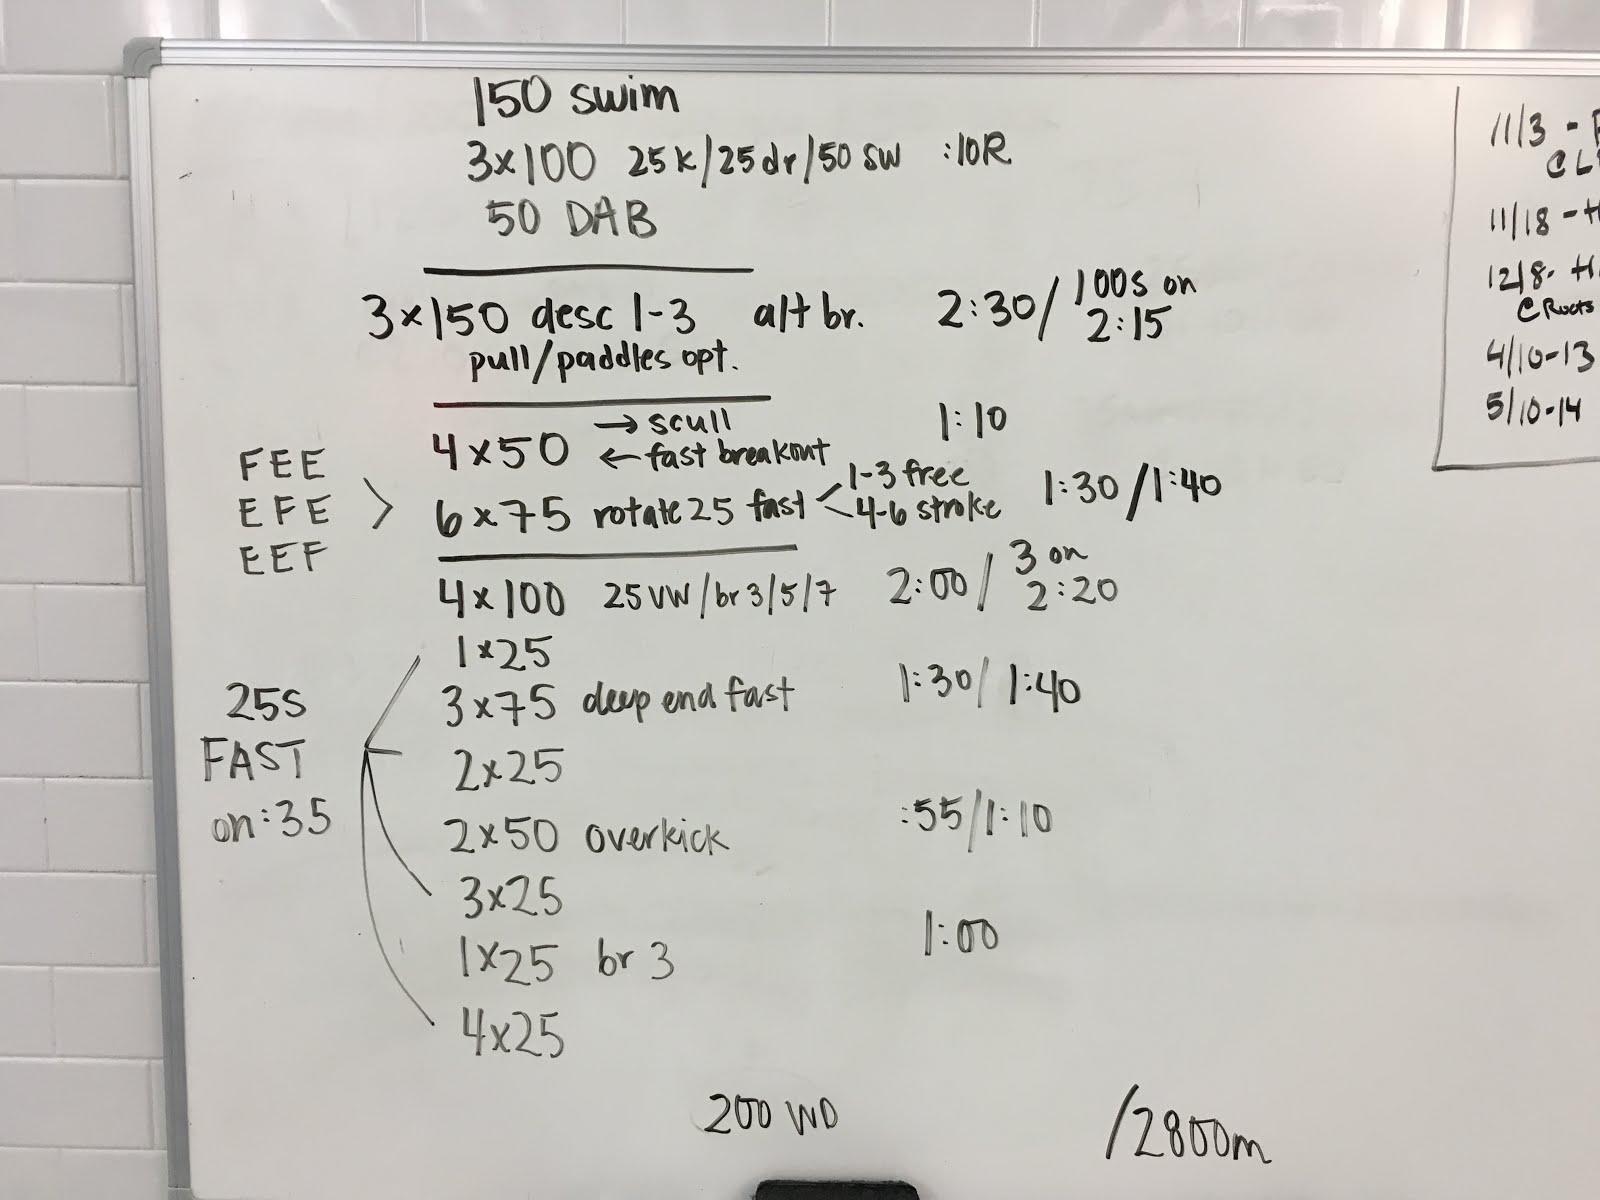 150 swim
3x100 25k/25dr/50 sw :10R
50 DAB
3x150 desc 1-3 alt br. 2:30/ 100s on 2:15
pull/paddles opt.
4x50 → scull 1:10
← fast breakout
6x75 rotate 25 fast < 1-3 free 1:30/1:40
4-6 stroke
FEE
EFE >
EEF
4x100 25 VW/br 3/5/7 2:00/ 3 on 2:20
1x25
3x75 deep end fast 1:30/ 1:40
2x25
2x50 overkick :55/1:10
3x25
1x25 br 3 1:00
4x25
25s
FAST
on :35
200 WD /2800m
11/3 -
11/18 -
12/8-
4/10-13
5/10-14